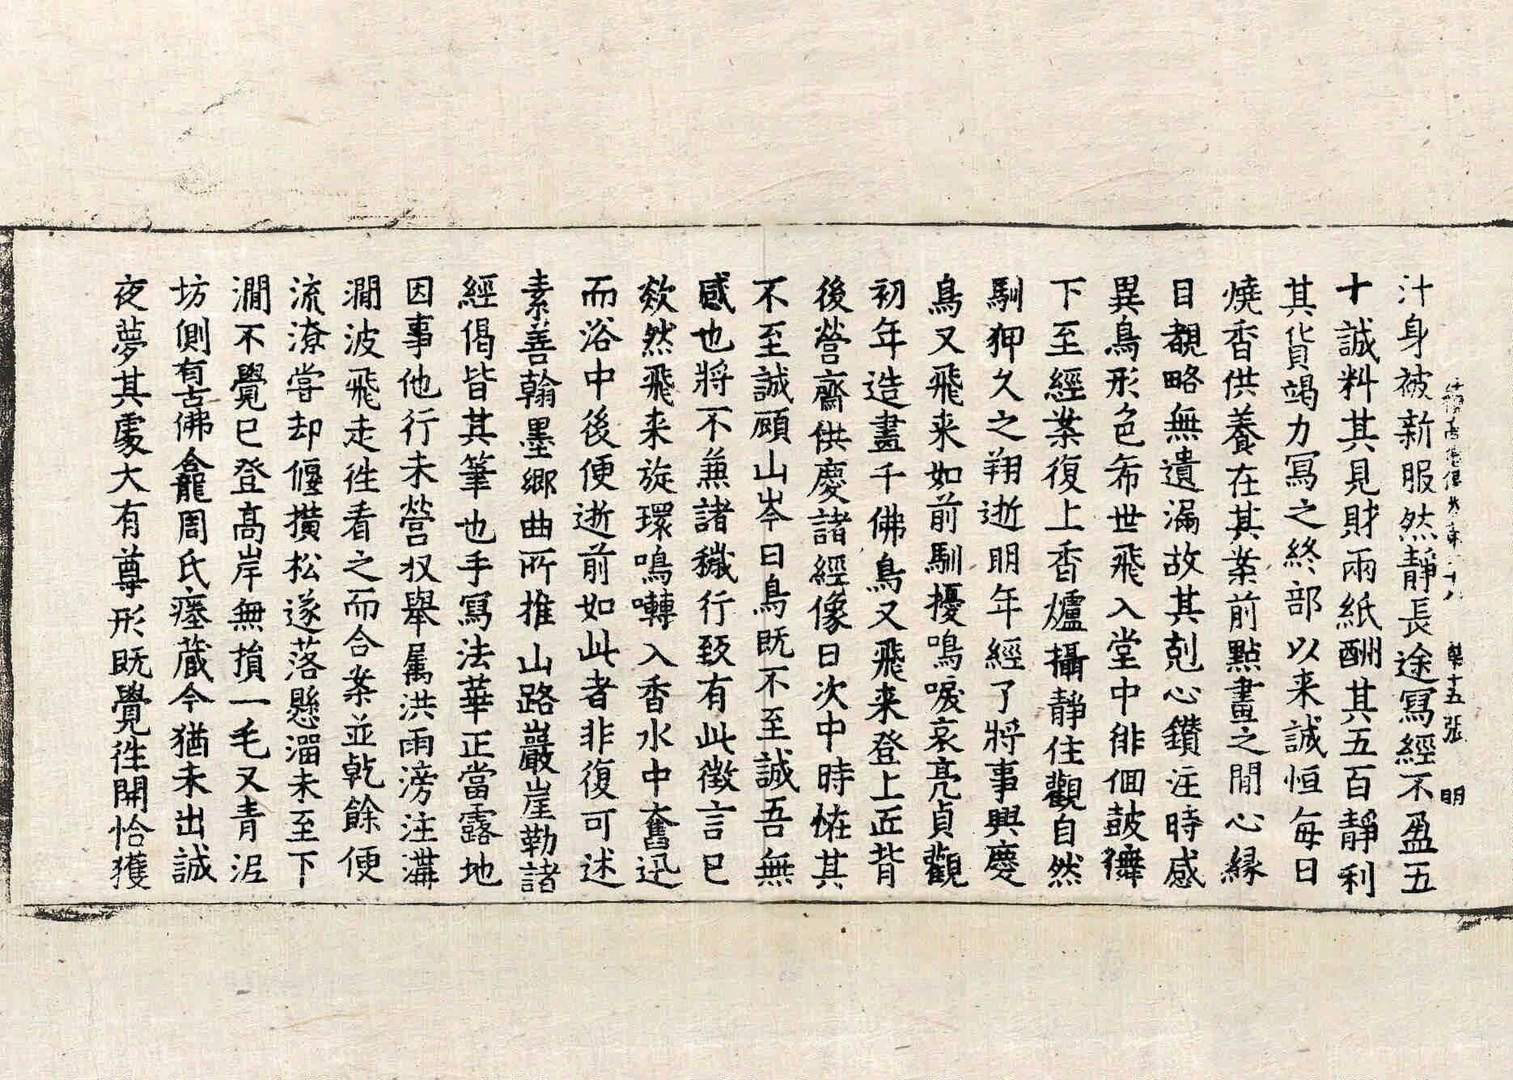 續高僧傳卷第二十八 第十五張 明
汁身被新服然靜長途寫經不盈五
十誠料其見財兩紙酬其五百靜利
其貨竭力寫之終部以来誠恒每日
燒香供養在其案前點畫之閒心緣
目覩略無遺漏故其剋心鑽注時感
異鳥形色希世飛入堂中徘佪鼓儛
下至經案復上香爐攝靜住觀自然
馴狎久之翔逝明年經了將事興慶
鳥又飛来如前馴擾鳴唳哀亮貞觀
初年造畫千佛鳥又飛来登上匠背
後營齋供慶諸經像日次中時恠其
不至誠顧山岑曰鳥既不至誠吾無
感也將不兼諸穢行致有此徵言已
欻然飛来旋環鳴囀入香水中奮迅
而浴中後便逝前如此者非復可述
素善翰墨鄉曲所推山路巖崖勒諸
經偈皆其筆也手寫法華正當露地
因事他行未營收舉属洪雨滂注溝
澗波飛走往看之而合案並乾餘便
流潦甞却偃横松遂落懸溜未至下
澗不覺已登高岸無損一毛又青泥
坊側有古佛龕周氏瘞蔵今猶未出誠
夜夢其處大有尊形既覺往開恰獲